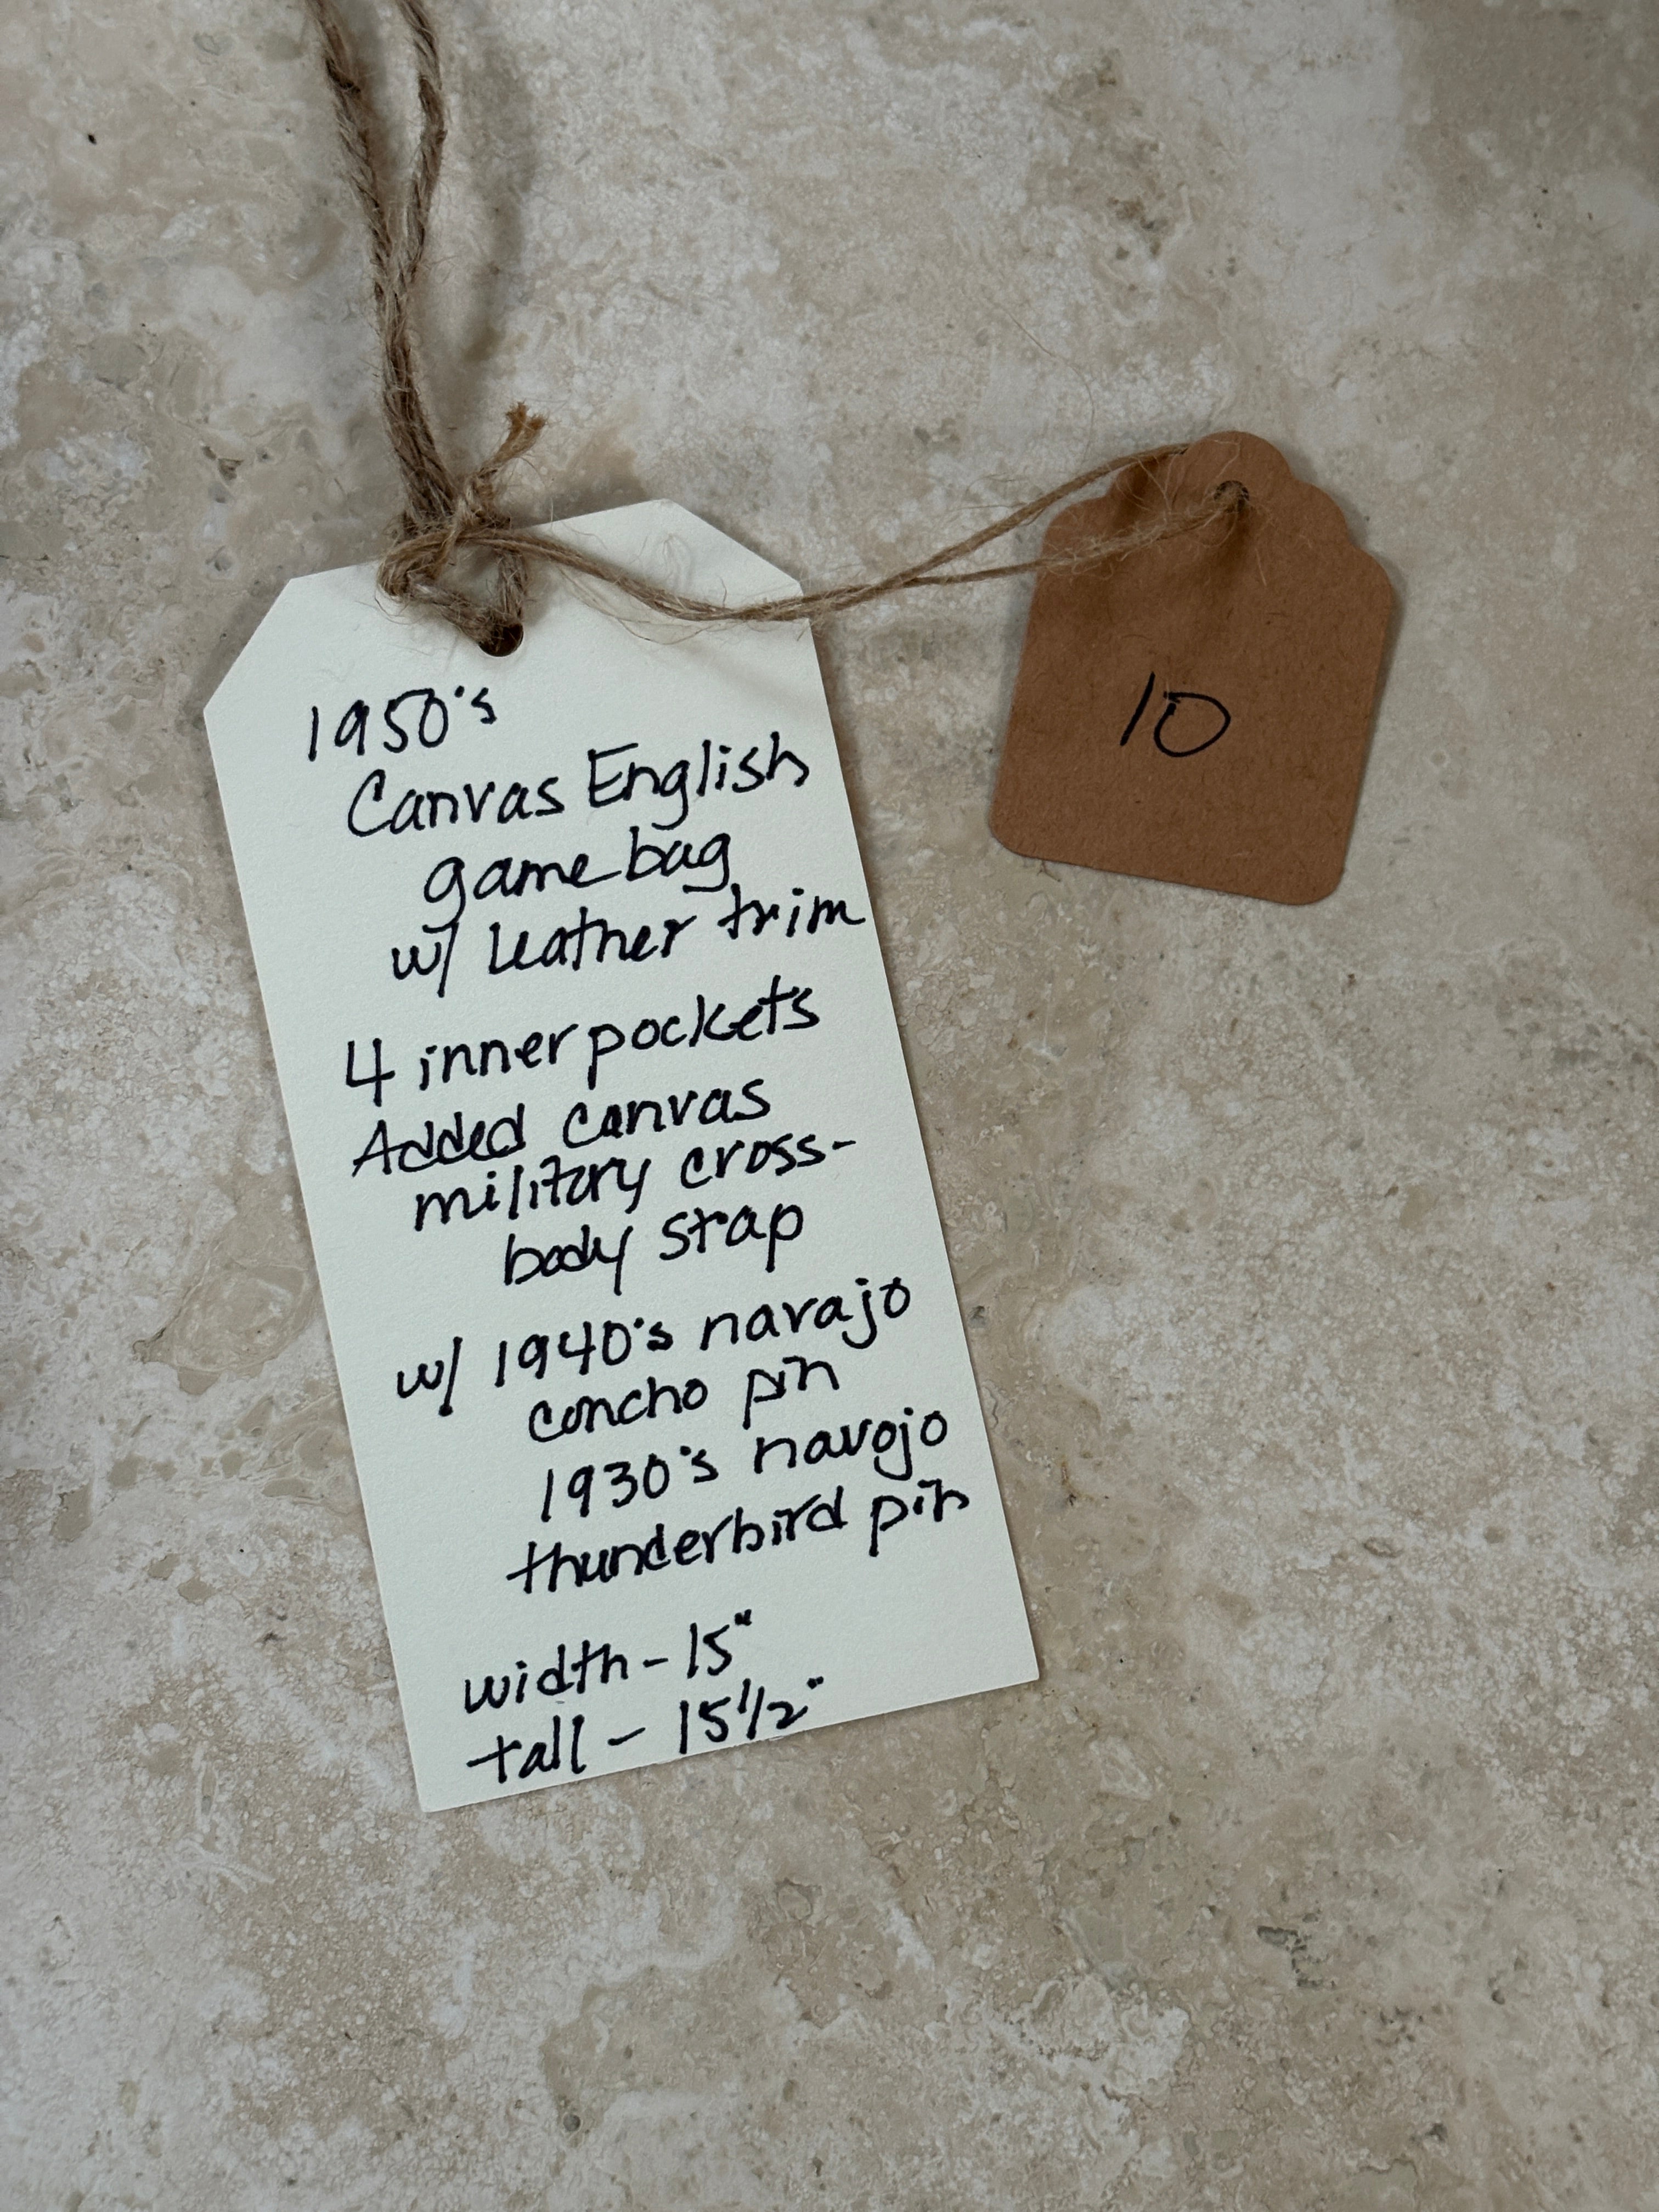 1950's
Canvas English
game bag
w/ leather trim
4 inner pockets
Added canvas
military cross-
body strap
w/ 1940's navajo
concho pin
1930's navojo
thunderbird pin
width - 15"
tall - 15 1/2"
10